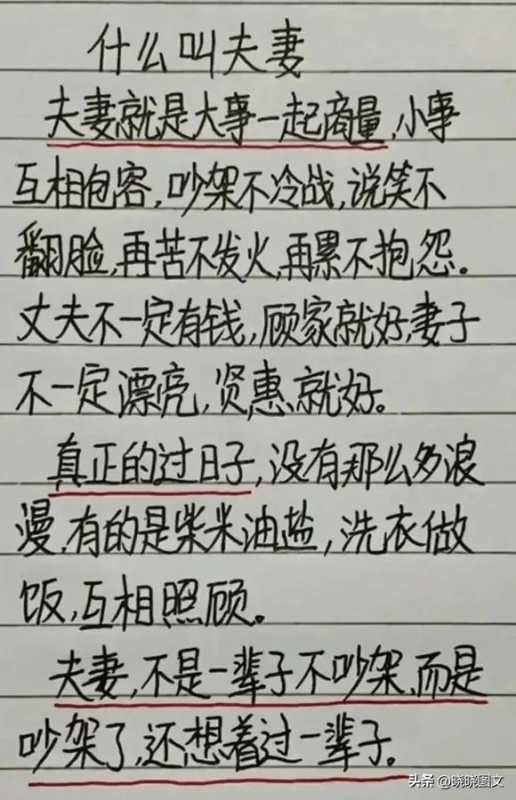 什么叫夫妻
夫妻就是大事一起商量,小事
互相包容,吵架不冷战,说笑不
翻脸,再苦不发火,再累不抱怨。
丈夫不一定有钱,顾家就好,妻子
不一定漂亮,贤惠就好。
真正的过日子,没有那么多浪
漫,有的是柴米油盐,洗衣做
饭,互相照顾。
夫妻,不是一辈子不吵架,而是
吵架了,还想着过一辈子。
头条 @晓晓图文